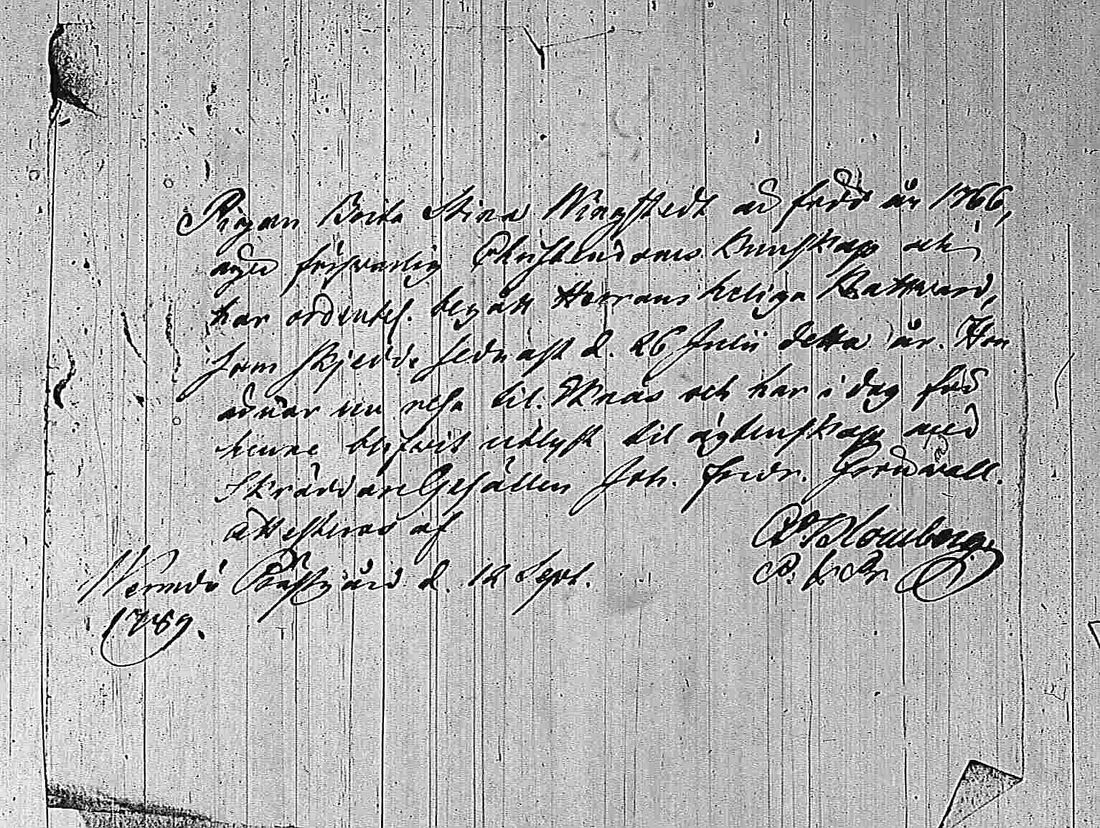 Pigan Brita Stina Wingstedt är född år 1766,
äger försvarlig Christendoms kunskap och
har ordentel. begått Herrans heliga Nattward,
som skjedde sednast d. 26 Julii detta år. Hon
ärnar nu resa til och har i dag för
henne blifvit utlyst til ägtenskap med
Skräddare Gesällen Joh. Fridr.
attesteras af Blomberg
Wermdö Prästgård d. 12 Sept.
1789.